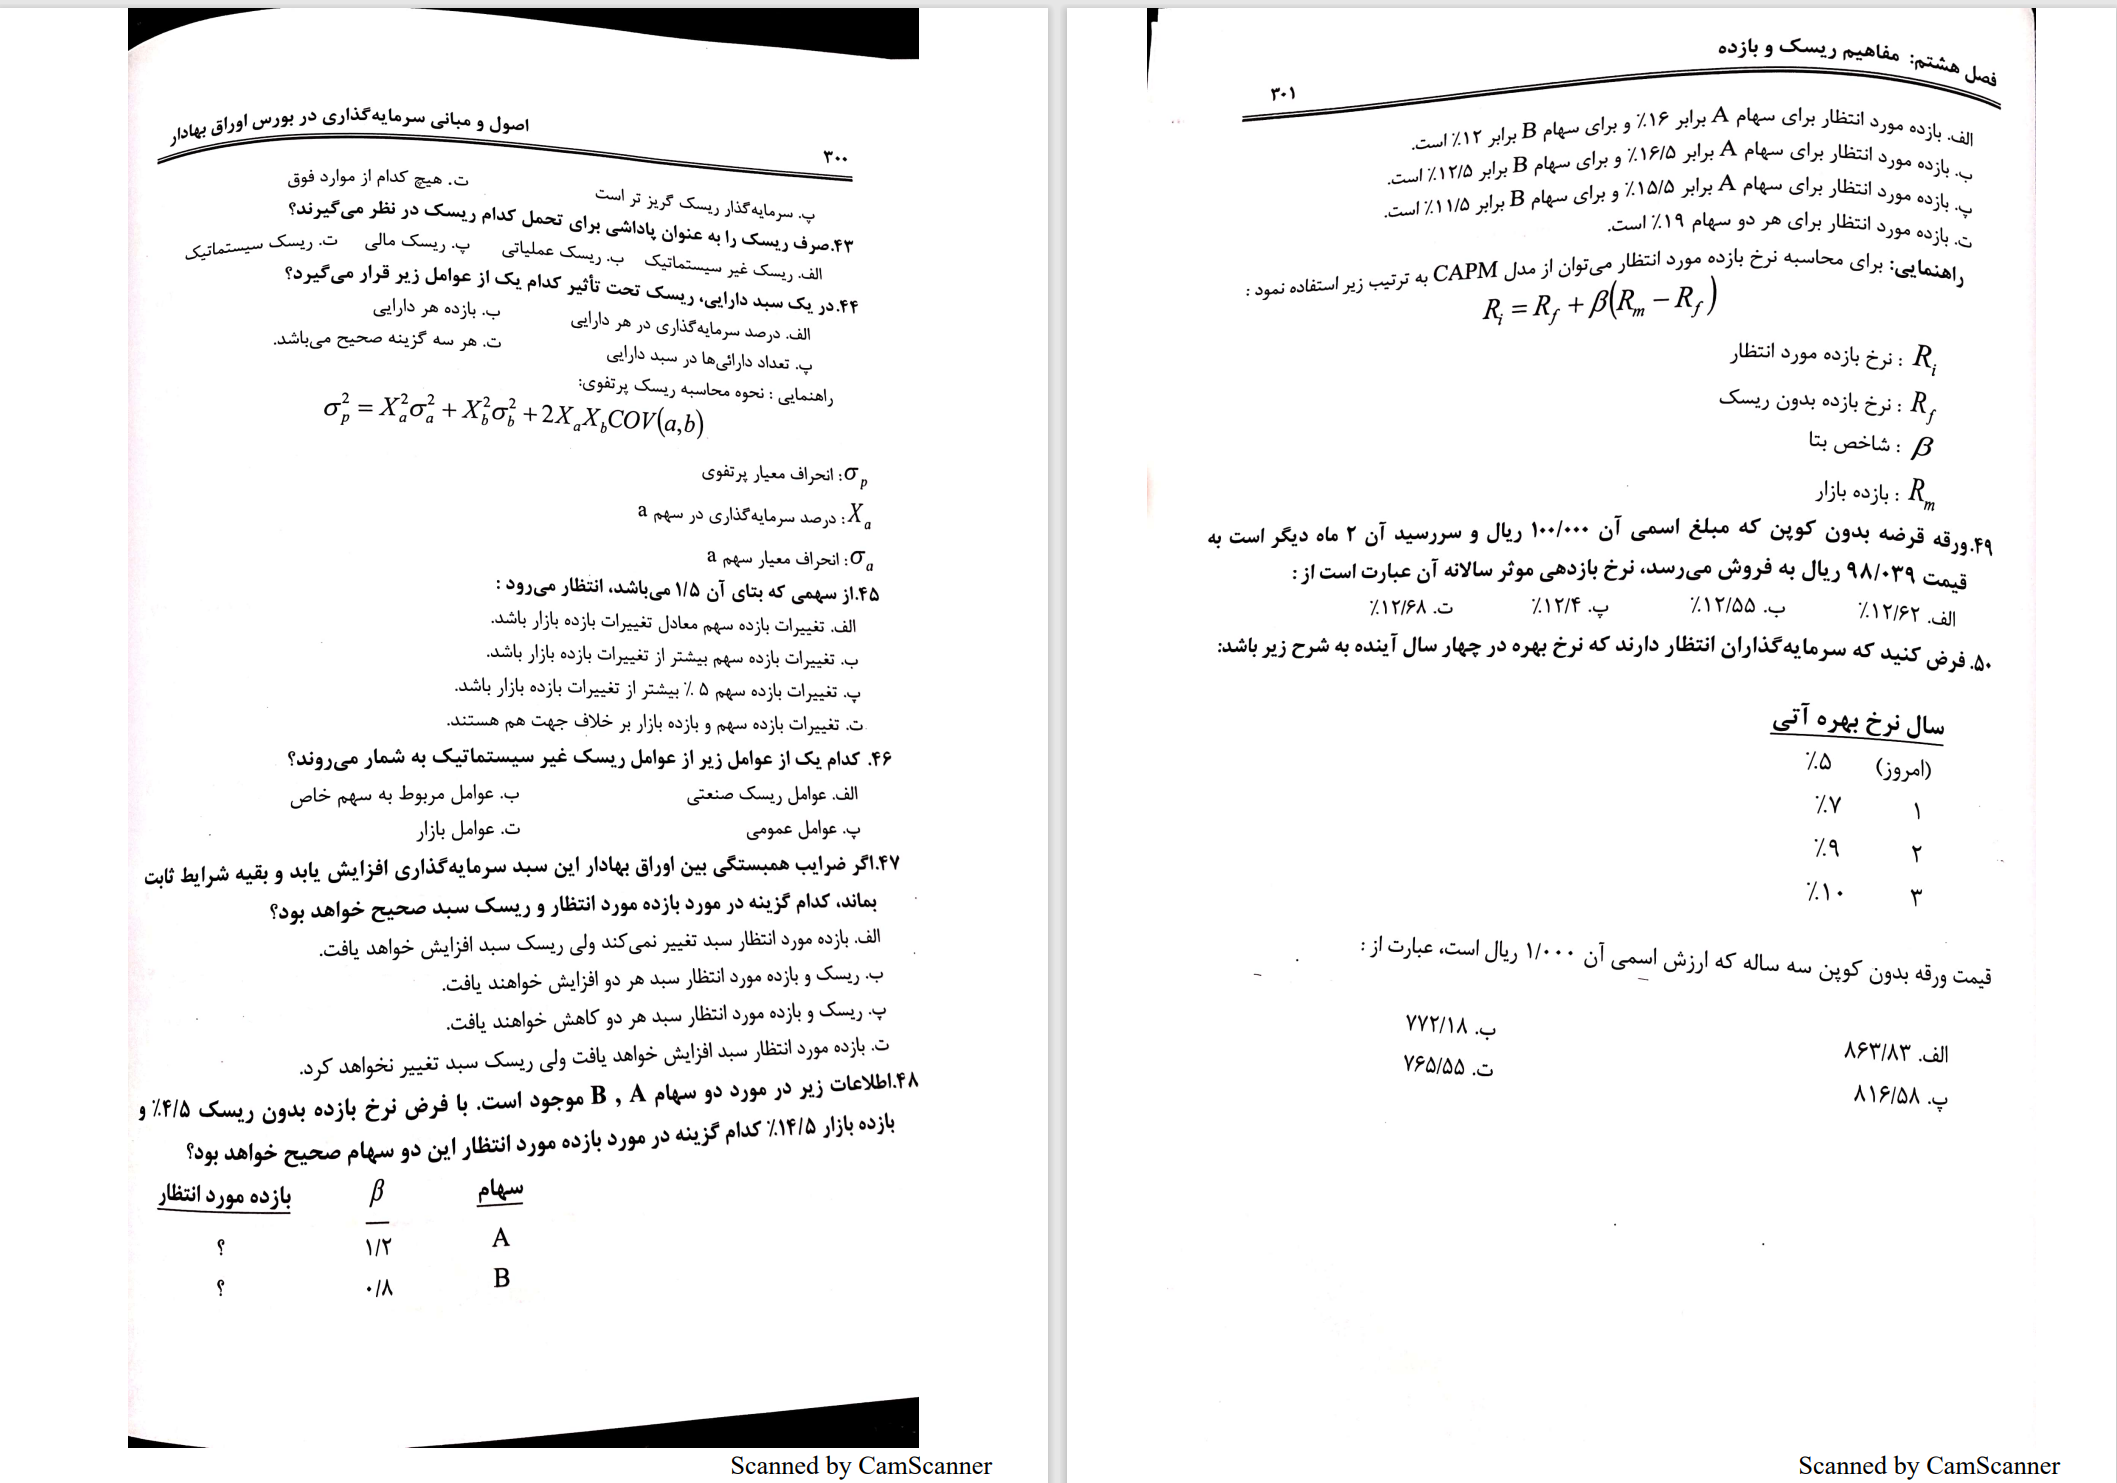 فصل هشتم: مفاهیم ریسک و بازده
۳۰۱
الف. بازده مورد انتظار برای سهام A برابر ۱۶٪ و برای سهام B برابر ۱۲٪ است.
ب. بازده مورد انتظار برای سهام A برابر ۱۶/۵٪ و برای سهام B برابر ۱۲/۵٪ است.
پ. بازده مورد انتظار برای سهام A برابر ۱۵/۵٪ و برای سهام B برابر ۱۱/۵٪ است.
ت. بازده مورد انتظار برای هر دو سهام ۱۹٪ است.
راهنمایی: برای محاسبه نرخ بازده مورد انتظار می‌توان از مدل CAPM به ترتیب زیر استفاده نمود :
R_i = R_f + β(R_m − R_f)
R_i : نرخ بازده مورد انتظار
R_f : نرخ بازده بدون ریسک
β : شاخص بتا
R_m : بازده بازار
۴۹.ورقه قرضه بدون کوپن که مبلغ اسمی آن ۱۰۰/۰۰۰ ریال و سررسید آن ۲ ماه دیگر است به
قیمت ۹۸/۰۳۹ ریال به فروش می‌رسد، نرخ بازدهی موثر سالانه آن عبارت است از :
الف. ۱۲/۶۲٪ ب. ۱۲/۵۵٪ پ. ۱۲/۴٪ ت. ۱۲/۶۸٪
۵۰. فرض کنید که سرمایه‌گذاران انتظار دارند که نرخ بهره در چهار سال آینده به شرح زیر باشد:
سال نرخ بهره آتی
(امروز) ۵٪
۱ ۷٪
۲ ۹٪
۳ ۱۰٪
قیمت ورقه بدون کوپن سه ساله که ارزش اسمی آن ۱/۰۰۰ ریال است، عبارت از :
الف. ۸۶۳/۸۳ ب. ۷۷۲/۱۸
پ. ۸۱۶/۵۸ ت. ۷۶۵/۵۵
Scanned by CamScanner
اصول و مبانی سرمایه‌گذاری در بورس اوراق بهادار
۳۰۰
پ. سرمایه‌گذار ریسک گریز تر است ت. هیچ کدام از موارد فوق
۴۳.صرف ریسک را به عنوان پاداشی برای تحمل کدام ریسک در نظر می‌گیرند؟
الف. ریسک غیر سیستماتیک ب. ریسک عملیاتی پ. ریسک مالی ت. ریسک سیستماتیک
۴۴.در یک سبد دارایی، ریسک تحت تأثیر کدام یک از عوامل زیر قرار می‌گیرد؟
الف. درصد سرمایه‌گذاری در هر دارایی ب. بازده هر دارایی
پ. تعداد دارائی‌ها در سبد دارایی ت. هر سه گزینه صحیح می‌باشد.
راهنمایی : نحوه محاسبه ریسک پرتفوی:
σ_p^2 = X_a^2σ_a^2 + X_b^2σ_b^2 + 2X_aX_bCOV(a,b)
σ_p: انحراف معیار پرتفوی
X_a: درصد سرمایه‌گذاری در سهم a
σ_a: انحراف معیار سهم a
۴۵.از سهمی که بتای آن ۱/۵ می‌باشد، انتظار می‌رود :
الف. تغییرات بازده سهم معادل تغییرات بازده بازار باشد.
ب. تغییرات بازده سهم بیشتر از تغییرات بازده بازار باشد.
پ. تغییرات بازده سهم ۵ ٪ بیشتر از تغییرات بازده بازار باشد.
ت. تغییرات بازده سهم و بازده بازار بر خلاف جهت هم هستند.
۴۶. کدام یک از عوامل زیر از عوامل ریسک غیر سیستماتیک به شمار می‌روند؟
الف. عوامل ریسک صنعتی ب. عوامل مربوط به سهم خاص
پ. عوامل عمومی ت. عوامل بازار
۴۷.اگر ضرایب همبستگی بین اوراق بهادار این سبد سرمایه‌گذاری افزایش یابد و بقیه شرایط ثابت
بماند، کدام گزینه در مورد بازده مورد انتظار و ریسک سبد صحیح خواهد بود؟
الف. بازده مورد انتظار سبد تغییر نمی‌کند ولی ریسک سبد افزایش خواهد یافت.
ب. ریسک و بازده مورد انتظار سبد هر دو افزایش خواهند یافت.
پ. ریسک و بازده مورد انتظار سبد هر دو کاهش خواهند یافت.
ت. بازده مورد انتظار سبد افزایش خواهد یافت ولی ریسک سبد تغییر نخواهد کرد.
۴۸.اطلاعات زیر در مورد دو سهام B , A موجود است. با فرض نرخ بازده بدون ریسک ۴/۵٪ و
بازده بازار ۱۴/۵٪ کدام گزینه در مورد بازده مورد انتظار این دو سهام صحیح خواهد بود؟
سهام β بازده مورد انتظار
A ۱/۲ ؟
B ۰/۸ ؟
Scanned by CamScanner